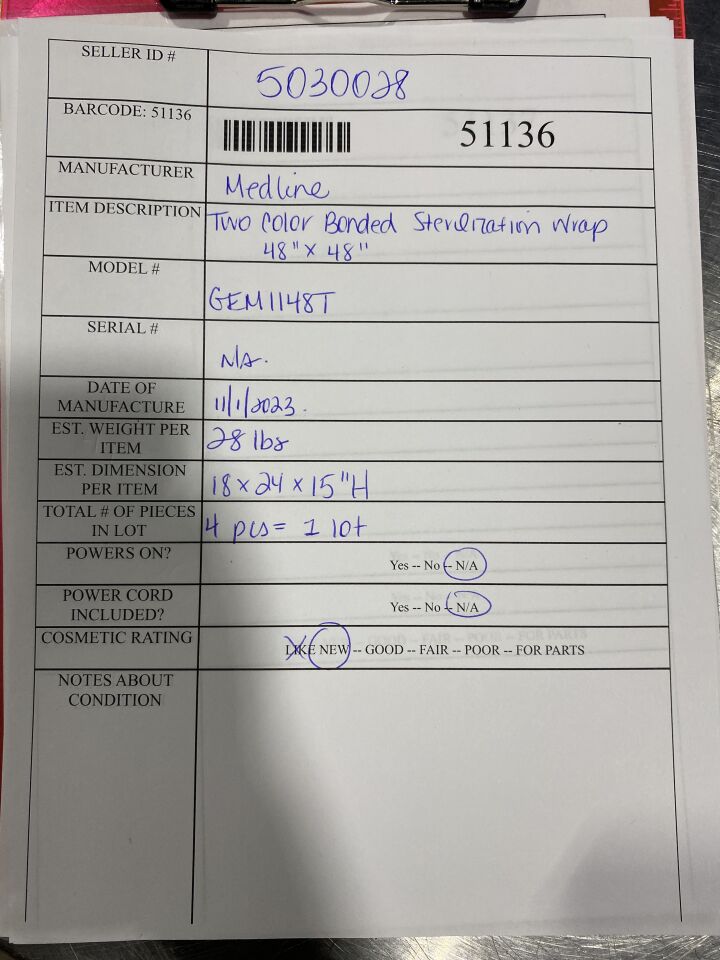 SELLER ID #
5030028
BARCODE: 51136
51136
MANUFACTURER
Medline
ITEM DESCRIPTION
Two Color Bonded Sterilization Wrap
48" x 48"
MODEL #
GEM1148T
SERIAL #
N/A.
DATE OF
MANUFACTURE
11/1/2023.
EST. WEIGHT PER
ITEM
28 lbs
EST. DIMENSION
PER ITEM
18 x 24 x 15"H
TOTAL # OF PIECES
IN LOT
4 pcs = 1 lot
POWERS ON?
Yes -- No -- N/A
POWER CORD
INCLUDED?
Yes -- No -- N/A
COSMETIC RATING
LIKE NEW -- GOOD -- FAIR -- POOR -- FOR PARTS
NOTES ABOUT
CONDITION